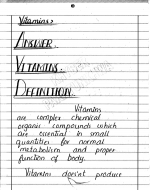 Vitamins:
ANSWER.
VITAMINS.
DEFINITION.
Vitamins
are complex chemical
organic compounds which
are essential in small
quantities for normal
metabolism and proper
function of body.
Vitamins doesn't produce